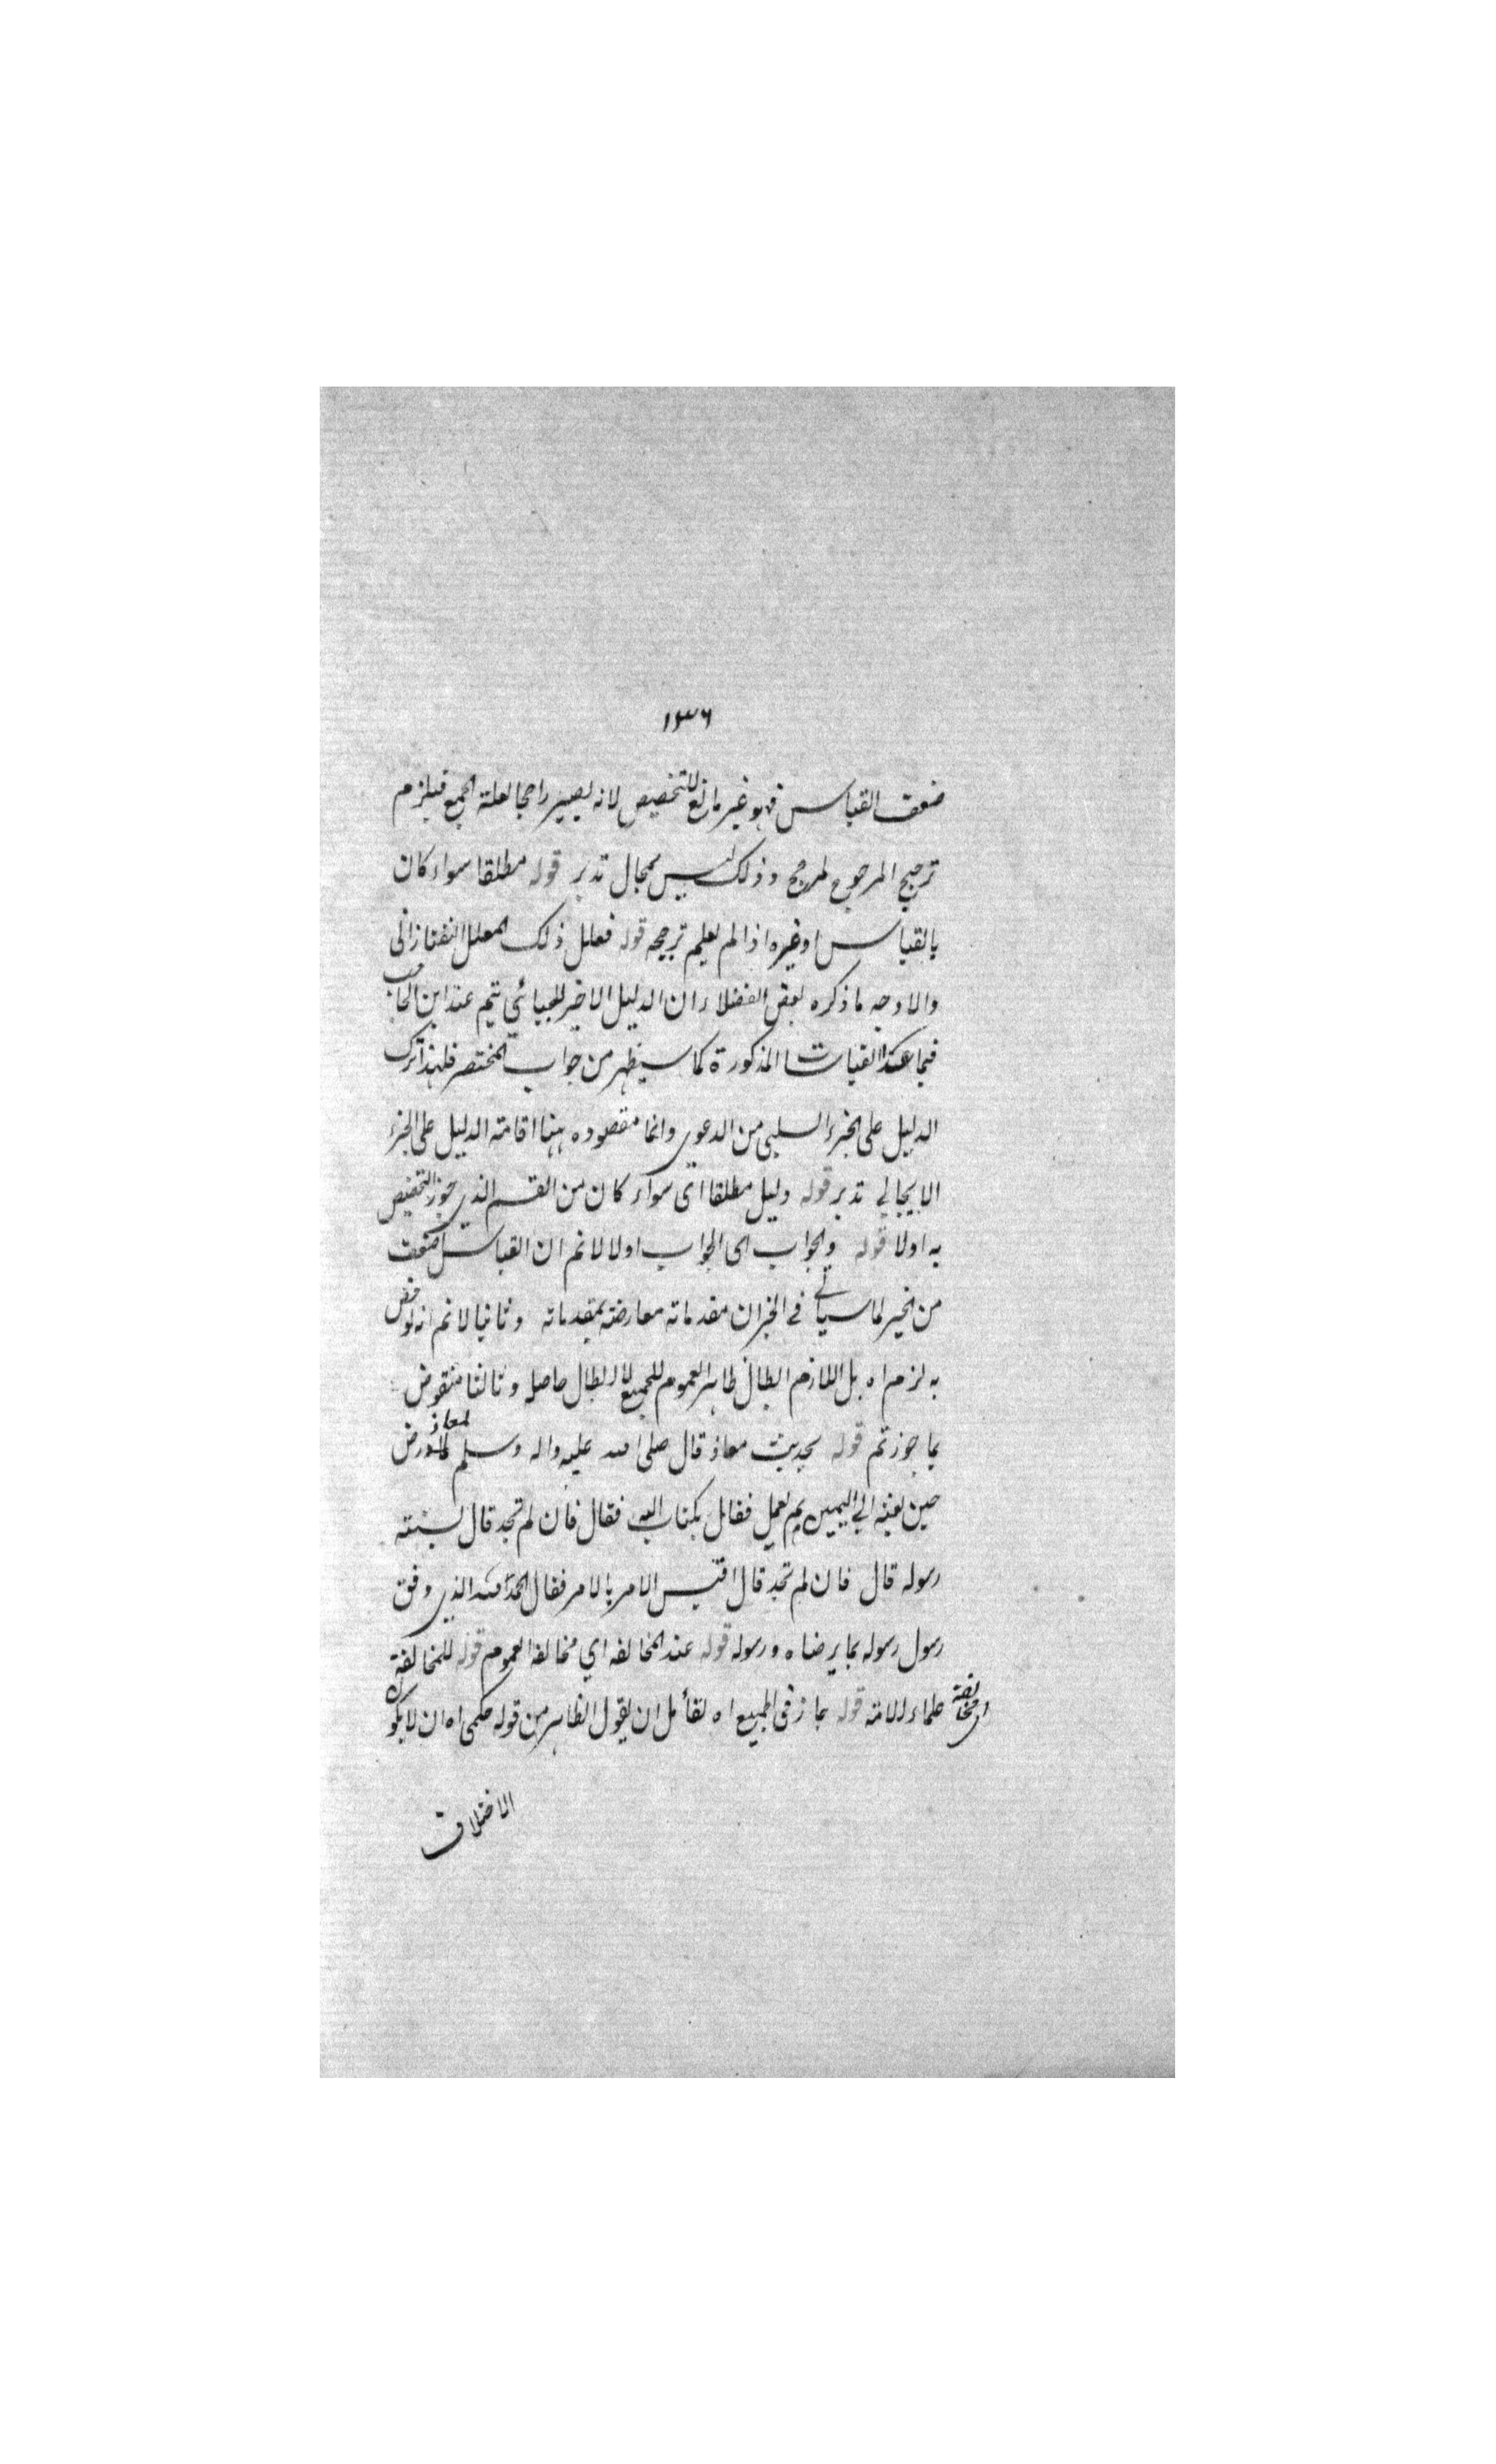 ١٣٦
ضعف القياس فهو غير مانع للتخصيص لانه يصير راجحا لعلة الجمع فيلزم
ترجيح المرجوح لمرجح وذلك ليس بمحال تدبر قوله مطلقا سواء كان
بالقياس او غيره اذا لم يعلم ترجيحه قوله فعلل ذلك المعلل التفتازاني
والاوجه ما ذكره بعض الفضلاء ان الدليل الاخير للجبائي يتم عند ابن الحاجب
فيما عدا القياسات المذكورة كما سيظهر من جواب المختصر فلهذا ترك
الدليل على الجزء السلبي من الدعوى وانما مقصوده ههنا اقامته الدليل على الجزء
الايجابي تدبر قوله دليل مطلقا اى سواء كان من القسم الذي يجوز التخصيص
به اولا قوله والجواب اى الجواب اولا لا نم ان القياس اضعف
من الخبر لما سياتي في الخبر ان مقدماته معارضته بمقدماته وثانيا لا نم انه لو خص
به لزم اه بل اللازم ابطال ظاهر العموم للجميع لا ابطال حاصله وثالثا منقوض
بما جوزتم قوله بحديث معاذ قال صلى الله عليه واله وسلم لمعاذ رض
حين بعثه الي اليمن بم تعمل فقال بكتاب الله فقال فان لم تجد قال بسنته
رسوله قال فان لم تجد قال اقيس الامر بالامر فقال الحمد لله الذي وفق
رسول رسوله بما يرضاه ورسوله قوله عند المخالفه اي مخالفه العموم قوله للمخالفة
اى مخالفة علماء الامته قوله جاز في الجميع اه لقائل ان يقول الظاهر من قوله حكمى اه ان لا يكون
الاختلاف